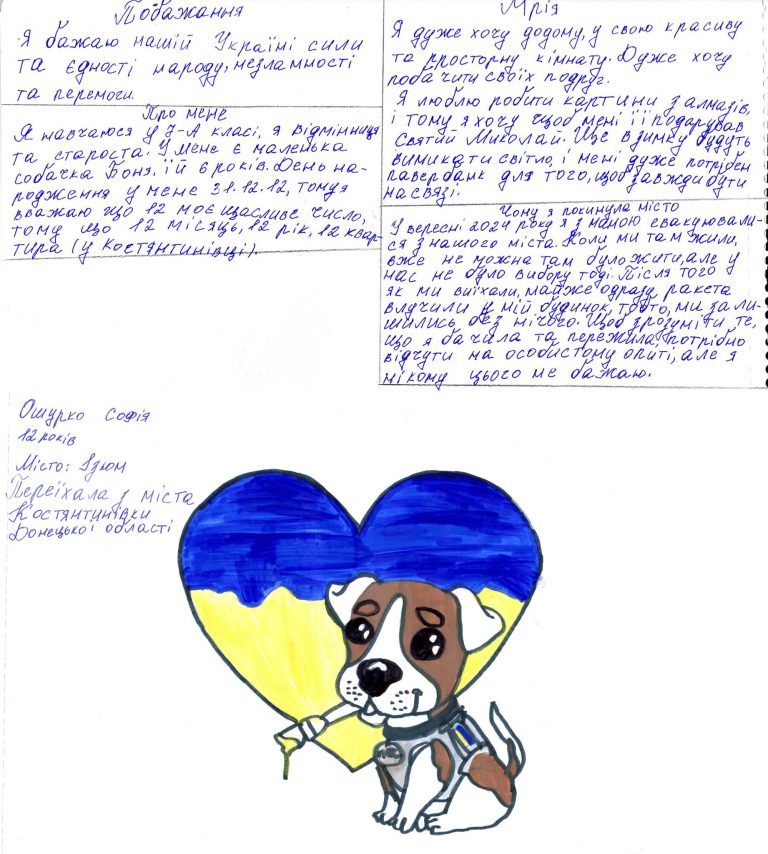 Побажання
Я бажаю нашій Україні сили
та єдності народу, незламності
та перемоги.
Про мене
Я навчаюся у 7-А класі, я відмінниця
та староста. У мене є маленька
собачка Боня, їй 6 років. День на-
родження у мене 31.12.12, тому я
вважаю що 12 моє щасливе число,
тому що 12 місяць, 12 рік, 12 квар-
тира (у Костянтинівці).
Мрія
Я дуже хочу додому, у свою красиву
та просторну кімнату. Дуже хочу
побачити своїх подруг.
Я люблю робити картини з алмазів,
і тому я хочу щоб мені її подарував
Святий Миколай. Ще взимку будуть
вимикати світло, і мені дуже потрібен
павербанк для того, щоб завжди бути
на связі.
Чому я покинула місто
У вересні 2024 року я з мамою евакуювали-
ся з нашого міста. Коли ми там жили,
вже не можна там було жити, але у
нас не було вибору тоді. Після того
як ми виїхали, майже одразу, ракета
влучили у мій будинок, тобто, ми зали-
шились без нічого. Щоб зрозуміти те,
що я бачила та пережила, потрібно
відчути на особистому опиті, але я
нікому цього не бажаю.
Ошурко Софія
12 років
Місто: Ізюм
Переїхала з міста
Костянтинівки
Донецької області